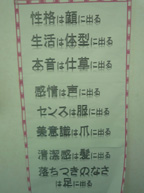 性格は顔に出る
生活は体型に出る
本音は仕草に出る
感情は声に出る
センスは服に出る
美意識は爪に出る
清潔感は髪に出る
落ちつきのなさ
は足に出る